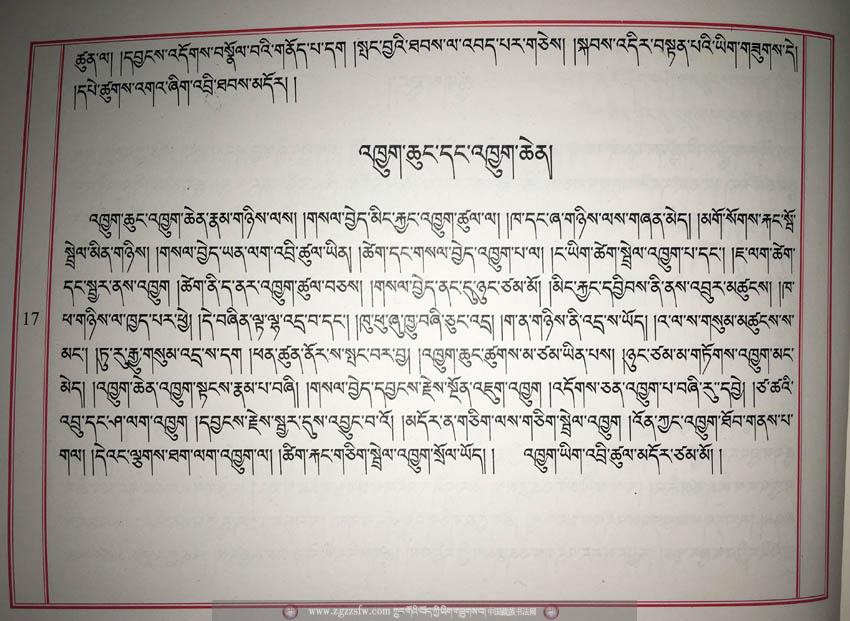 ཚུན་ལ། །དབྱངས་འདོགས་བསྣོལ་བའི་གནོད་པ་དག །སྤང་བྱའི་ཐབས་ལ་འབད་པར་གཅེས། །སྐབས་འདིར་བསྟན་པའི་ཡིག་གཟུགས་དེ།
།དཔེ་ཚུགས་འགའ་ཞིག་འབྲི་ཐབས་མདོར། །
འཁྱུག་ཆུང་དང་འཁྱུག་ཆེན།
འཁྱུག་ཆུང་འཁྱུག་ཆེན་རྣམ་གཉིས་ལས། །གསལ་བྱེད་མིང་རྐྱང་འཁྱུག་ཚུལ་ལ། །ཁ་དང་ཞ་གཉིས་ལས་གཞན་མེད། །མགོ་སོགས་རྐང་སྤོ་
སྤྲེལ་མིན་གཉིས། །གསལ་བྱེད་ཡན་ལག་འབྲི་ཚུལ་ཡིན། །ཚེག་དང་གསལ་བྱེད་འཁྱུག་པ་ལ། །ང་ཡིག་ཚེག་སྤྲེལ་འཁྱུག་པ་དང་། །ཇ་ལག་ཚེག་
དང་སྦྱར་ནས་འཁྱུག །ཚེག་ནི་ད་ནར་འཁྱུག་ཚུལ་བཅས། །གསལ་བྱེད་ནང་དུ་ཉུང་ཙམ་མོ། །མིང་རྐྱང་དབྱིབས་ནི་ནས་འབྲུར་མཚུངས། །ཁ་
ཕ་གཉིས་ལ་ཁྱད་པར་ཕྱེ། །དེ་བཞིན་ལྟ་ལྷ་འདྲ་བ་དང་། །ཁུ་ཕུ་ཞུ་ཁྱུ་བཞི་ཅུང་འདྲ། །ག་ན་གཉིས་ནི་འདྲ་ས་ཡོད། །འ་ལ་ས་གསུམ་མཚུངས་ས་
མང་། །ཏུ་རུ་རྒྱུ་གསུམ་འདྲ་ས་དག །ཕན་ཚུན་ནོར་ས་སྤང་བར་བྱ། །འཁྱུག་ཆུང་ཚུགས་མ་ཙམ་ཡིན་པས། །ཉུང་ཙམ་མ་གཏོགས་འཁྱུག་མང་
མེད། །འཁྱུག་ཆེན་འཁྱུག་སྟངས་རྣམ་པ་བཞི། །གསལ་བྱེད་དབྱངས་རྗེས་སྔོན་འཇུག་འཁྱུག །འདོགས་ཅན་འཁྱུག་པ་བཞི་རུ་དབྱེ། །ཙ་ཚའི་
འབྲུ་དང་ཤ་ལག་འཁྱུག །དབྱངས་རྗེས་སྦྱར་དུས་འབྱུང་བ་འོ། །མདོར་ན་གཅིག་ལས་གཅིག་སྤྲེལ་འཁྱུག །འོན་ཀྱང་འཁྱུག་ཐོབ་གནས་པ་
གལ། །དེའང་ལྕགས་ཐག་ལག་འཁྱུག་ལ། །ཚིག་རྐང་གཅིག་སྤྲེལ་འཁྱུག་སྲོལ་ཡོད། ། འཁྱུག་ཡིག་འབྲི་ཚུལ་མདོར་ཙམ་མོ། །
17
www.zgzzsfw.com 中国藏族书法网